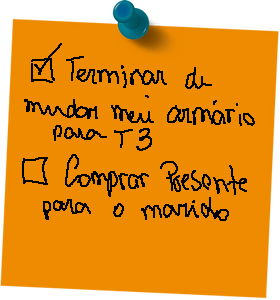 ☑ Terminar de
mudar meu armário
para T3
☐ Comprar Presente
para o marido